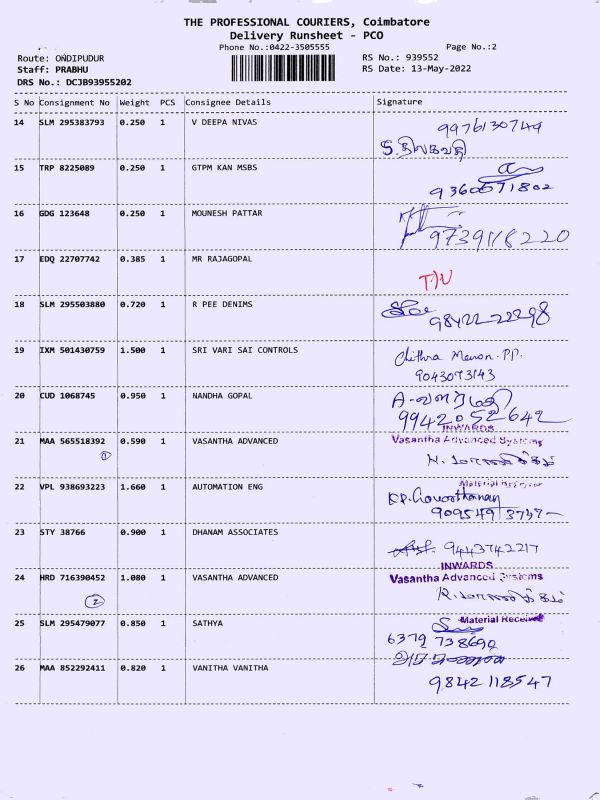 THE PROFESSIONAL COURIERS, Coimbatore
Delivery Runsheet - PCO
Phone No.:0422-3505555
Page No.:2
Route: ONDIPUDUR
RS No.: 939552
Staff: PRABHU
RS Date: 13-May-2022
DRS No.: DCJB93955202
S No Consignment No Weight PCS Consignee Details Signature
14 SLM 295383793 0.250 1 V DEEPA NIVAS 9976130749
S. திலகவதி
15 TRP 8225089 0.250 1 GTPM KAN MSBS
9360571802
16 GDG 123648 0.250 1 MOUNESH PATTAR
9739118220
17 EDQ 22707742 0.385 1 MR RAJAGOPAL
18 SLM 295503880 0.720 1 R PEE DENIMS
98422-22298
19 IXM 501430759 1.500 1 SRI VARI SAI CONTROLS
Chithra Menon.P.P.
9043073143
20 CUD 1068745 0.950 1 NANDHA GOPAL
9942052642
INWARDS
21 MAA 565518392 0.590 1 VASANTHA ADVANCED Vasantha Advanced Systems
1
Material Received
22 VPL 938693223 1.660 1 AUTOMATION ENG
23 STY 38766 0.900 1 DHANAM ASSOCIATES
9443742217
INWARDS
24 HRD 716390452 1.080 1 VASANTHA ADVANCED Vasantha Advanced Systems
2
25 SLM 295479077 0.850 1 SATHYA Material Received
6379 738690
26 MAA 852292411 0.820 1 VANITHA VANITHA
9842118547